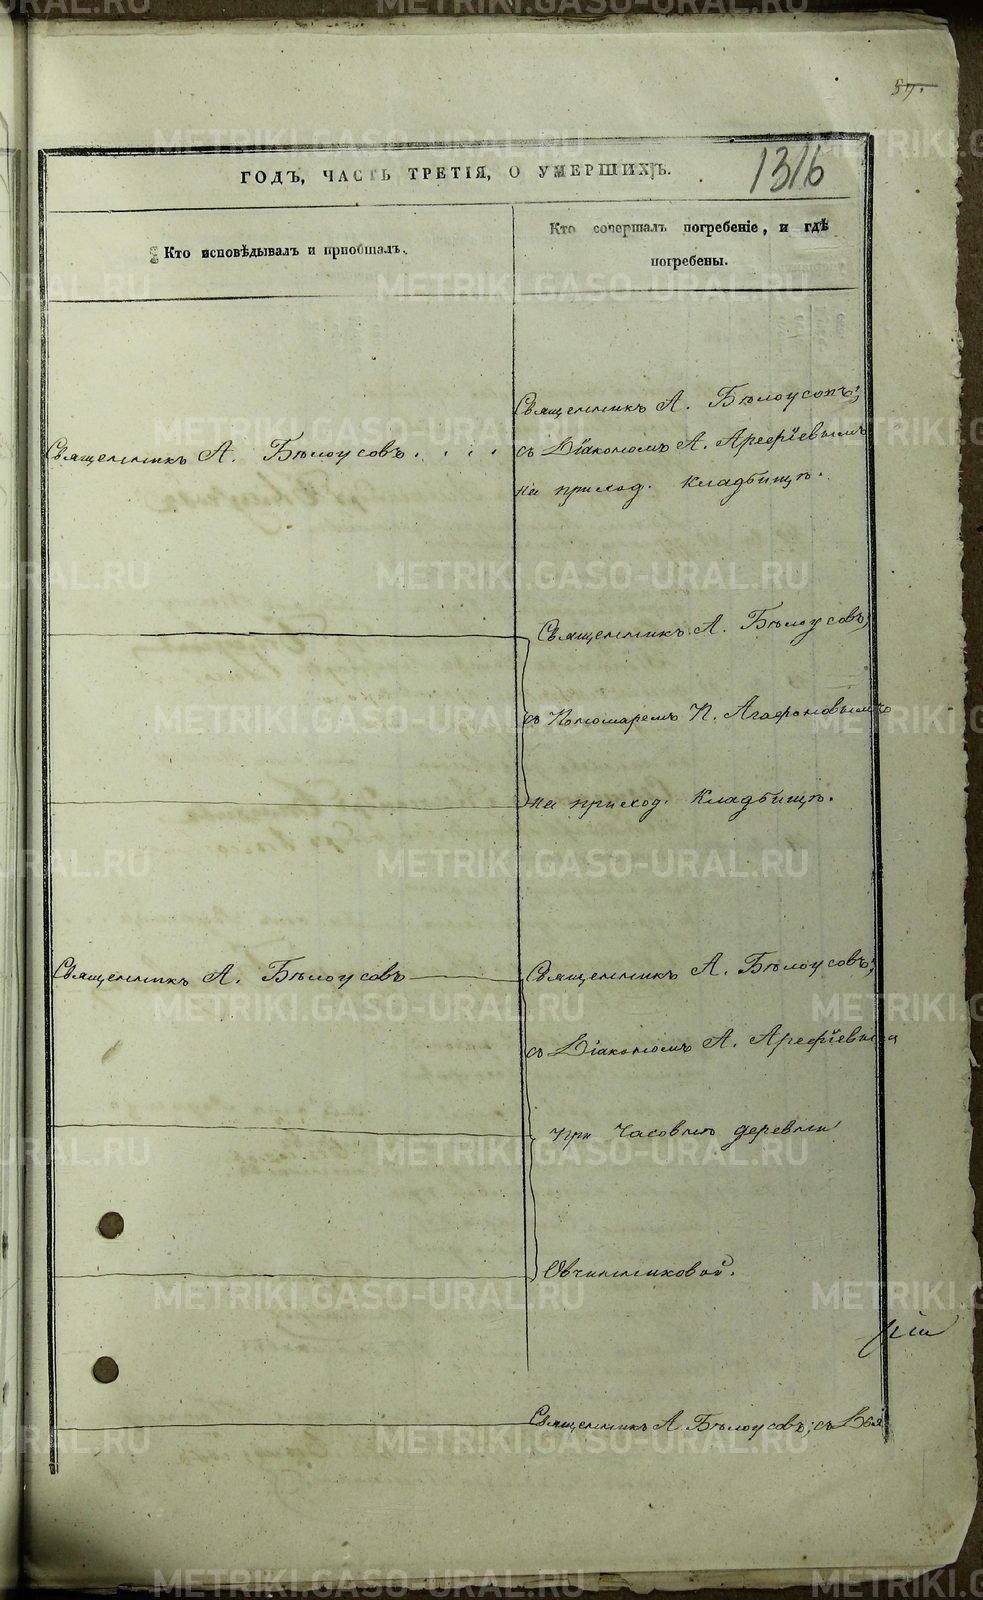 57.
ГОДЪ, ЧАСТЬ ТРЕТІЯ, О УМЕРШИХЪ.
1316
Кто исповѣдывалъ и пріобщалъ.
Кто совершалъ погребеніе, и гдѣ
погребены.
Священникъ А. Бѣлоусовъ . . . .
Священникъ А. Бѣлоусовъ;
съ Діакономъ А. Арефіевымъ
на приход. кладбищѣ.
Священникъ А. Бѣлоусовъ;
съ Пономаремъ П. Агафоновымъ
на приход. кладбищѣ.
Священникъ А. Бѣлоусовъ
Священникъ А. Бѣлоусовъ;
съ Діакономъ А. Арефіевымъ
при часовнѣ деревни
Овчинниковой.
Священникъ А. Бѣлоусовъ; съ
METRIKI.GASO-URAL.RU